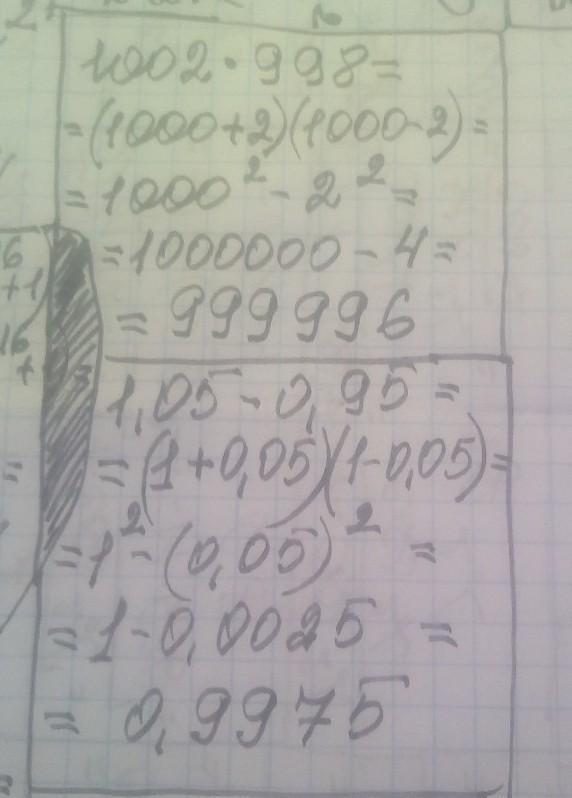 1002·998=
=(1000+2)(1000-2)=
=1000²-2²=
=1000000-4=
=999996
1,05-0,95=
=(1+0,05)(1-0,05)=
=1²-(0,05)²=
=1-0,0025=
=0,9975
6
+1
16
+
=